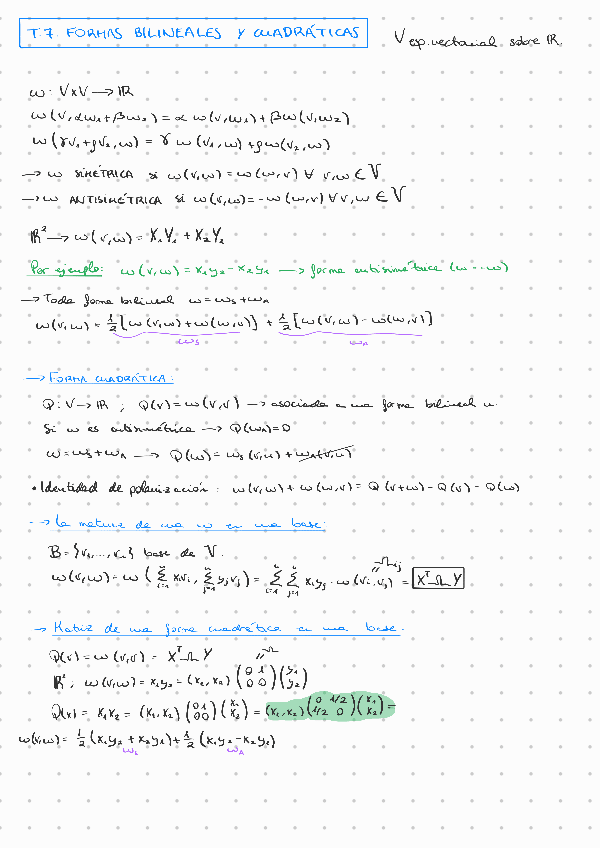 T.7 FORMAS BILINEALES Y CUADRÁTICAS
V esp. vectorial sobre ℝ.
ω: V×V → ℝ
ω(v, αω₁+βω₂) = α ω(v,ω₁) + βω(v,ω₂)
ω(γv₁+ρv₂, ω) = γ ω(v₁,ω) + ρω(v₂,ω)
→ ω SIMÉTRICA si ω(v,ω) = ω(ω,v) ∀ v,ω ∈ V
→ ω ANTISIMÉTRICA si ω(v,ω) = -ω(ω,v) ∀ v,ω ∈ V
ℝ² → ω(v,ω) = X₁Y₁ + X₂Y₂
Por ejemplo: ω(v,ω) = x₁y₂ - x₂y₁ → forma antisimétrica
→ Toda forma bilineal ω = ωs + ωA
ω(v,ω) = 1/2 [ω(v,ω) + ω(ω,v)] + 1/2 [ω(v,ω) - ω(ω,v)]
ωs ωA
→ FORMA CUADRÁTICA:
Q: V → ℝ ; Q(v) = ω(v,v) → asociada a una forma bilineal ω.
Si ω es antisimétrica → Q(ωA) = 0
ω = ωs + ωA → Q(ω) = ωs(v,v) + ωA(v,v)
• Identidad de polarización: ω(v,ω) + ω(ω,v) = Q(v+ω) - Q(v) - Q(ω)
→ La matriz de una ω en una base:
B = {v₁, ..., vn} base de V.
ω(v,ω) = ω( Σⁿᵢ₌₁ xᵢvᵢ, Σⁿⱼ₌₁ yⱼvⱼ ) = Σⁿᵢ₌₁ Σⁿⱼ₌₁ xᵢyⱼ · ω(vᵢ,vⱼ) = XᵀΩY
Ωij
→ Matriz de una forma cuadrática en una base.
Q(v) = ω(v,v) = XᵀΩY
Ω
ℝ²; ω(v,ω) = x₁y₂ = (x₁,x₂) (0 1 / 0 0) (y₁ / y₂)
Q(x) = x₁x₂ = (x₁,x₂) (0 1 / 0 0) (x₁ / x₂) = (x₁,x₂) (0 1/2 / 1/2 0) (x₁ / x₂) =
ω(v,ω) = 1/2 (x₁y₂ + x₂y₁) + 1/2 (x₁y₂ - x₂y₁)
ωs ωA